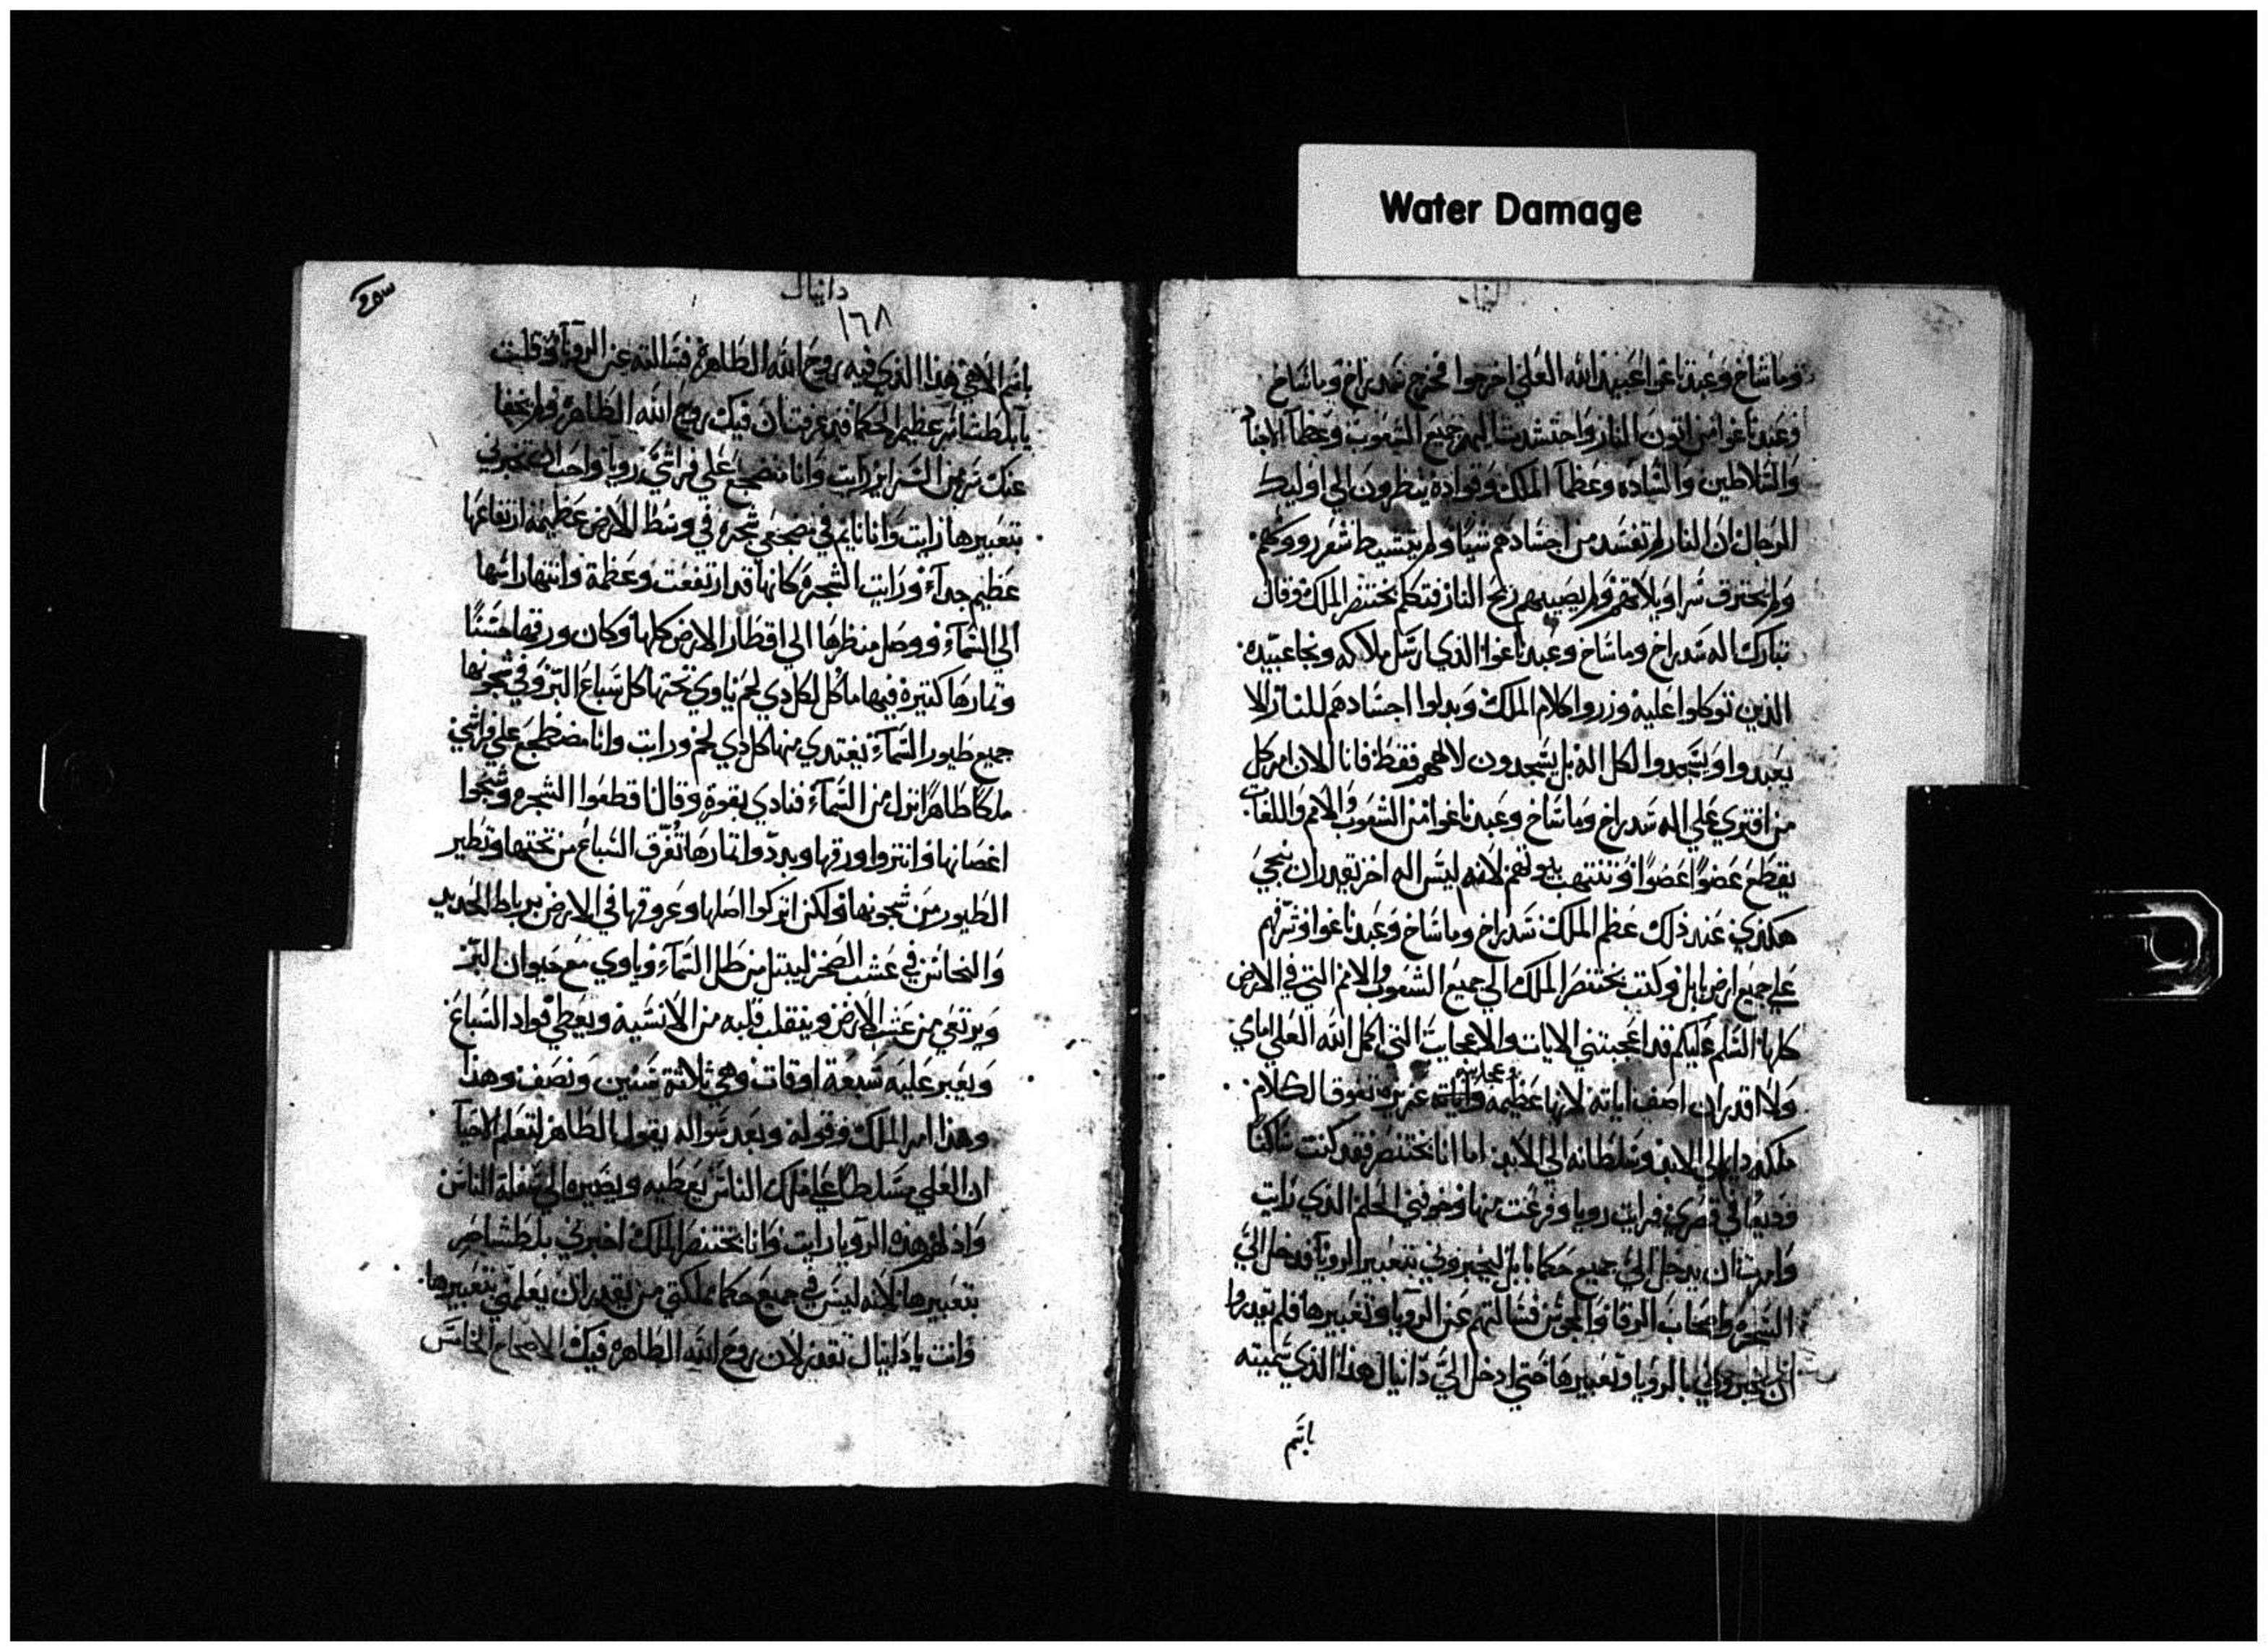 Water Damage
وماشاخ وعبدناغوا عبيد الله العلي اخرجوا فخرج شدراخ وماشاخ
وعبدناغوا من اتون النار واحتشدت اليهم جميع الشعوب وعظما الاجنا
والسلاطين والساده وعظما الملك وقواده ينظرون الي اوليك
الرجال ان النار لم تفسد من اجسادهم شيا ولم يتشيط شعر رووسهم
ولم يحترق سراويلاتهم ولم يصيبهم ريح النار فتكلم بختنصر الملك وقال
تبارك اله شدراخ وماشاخ وعبدناغوا الذي ارسل ملاكه ونجا عبيده
الذين توكلوا عليه وزروا كلام الملك وبدلوا اجسادهم للنار الا
يعبدوا ويسجدوا لكل اله بل يسجدون لالاههم فقط فانا الان امر كل
من افتري علي اله شدراخ وماشاخ وعبدناغوا من الشعوب والامم واللغات
يقطع عضوا عضوا وتنتهب بيوتهم لانه ليس اله اخر يقدر ان ينجي
هكذي عند ذلك عظم الملك شدراخ وماشاخ وعبدناغوا وشرفهم
علي جميع ارض بابل وكتب بختنصر الملك الي جميع الشعوب والامم التي في الارض
كلها السلم عليكم قد اعجبتني الايات والاعجايب التي اكمل الله العلي اماي
ولا اقدر ان اصف اياته لانها عظيمة واياته عزيزه تفوق الكلام
ملكه دايم الي الابد وسلطانه الي الابد اما انا بختنصر فقد كنت ساكنا
وديعا في قصري فرايت رويا وفزعت منها وخوفني الحلم الذي رايت
وامرت ان يدخل الي جميع حكما بابل ليخبروني بتعبير الرويا فدخل الي
السحره واصحاب الرقا والمجوس فسالتهم عن الرويا وتعبيرها فلم يقدروا
ان يخبروني بالرويا وتعبيرها حتي ادخل الي دانيال هذا الذي سميته
باسم
دانيال
١٦٨
باسم الاهي هذا الذي فيه روح الله الطاهره فسالته عن الرويا وقلت
يا بلطشاصر عظيم الحكما قد عرفت ان فيك روح الله الطاهره ولم يخفا
عنك سر من السراير رايت وانا مضجع علي فراشي رويا واحب ان تخبرني
بتعبيرها رايت وانا نايم في مضجعي شجره في وسط الارض عظيمه ارتفاعها
عظيم جداء ورايت الشجره كانها قد ارتفعت وعظمة وانتها راسها
الي السماء ووصل منظرها الي اقطار الارض كلها وكان ورقها حسنا
وثمارها كثيرة فيها ماكل لكل دي لحم ياوي تحتها كل سباع البر وفي شجونها
جميع طيور السماء يغتدي منها كل دي لحم ورايت وانا مضطجع علي فراشي
ملكا طاهرا نزل من السماء فنادي بقوة وقال اقطعوا الشجره وشجوا
اغصانها وانتروا ورقها وبددوا تمارها تفرق السباع من تحتها وتطير
الطيور من شجونها ولكن اتركوا اصلها وعروقها في الارض برباط الحديد
والنحاس في عشب الصخر ليبتل من طل السماء وياوي مع حيوان البر
ويرتعي من عشب الارض وينقلب قلبه من الانسية ويعطي فواد السباع
ويعبر عليه سبعة اوقات وهي ثلاثة سنين ونصف وهذا
وهذا امر الملك وقوله وبعد سواله يقول الطاهر لتعلم الاحيا
ان العلي مسلط علي ملك الناس يعطيه ويصيره الي سفلة الناس
واذ لم هذه الرويا رايت وانا بختنصر الملك اخبرني بلطشاصر
بتعبيرها لانه ليس في جميع حكما مملكتي من يقدر ان يعلمني بتعبيرها
وانت يا دانيال تقدر لان روح الله الطاهره فيك الاصحاح الخامس